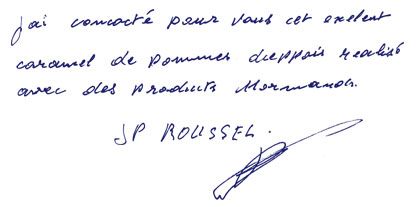 j'ai concocté pour vous cet exelent
caramel de pommes dieppois realisé
avec des products Normands.
JP ROUSSEL.